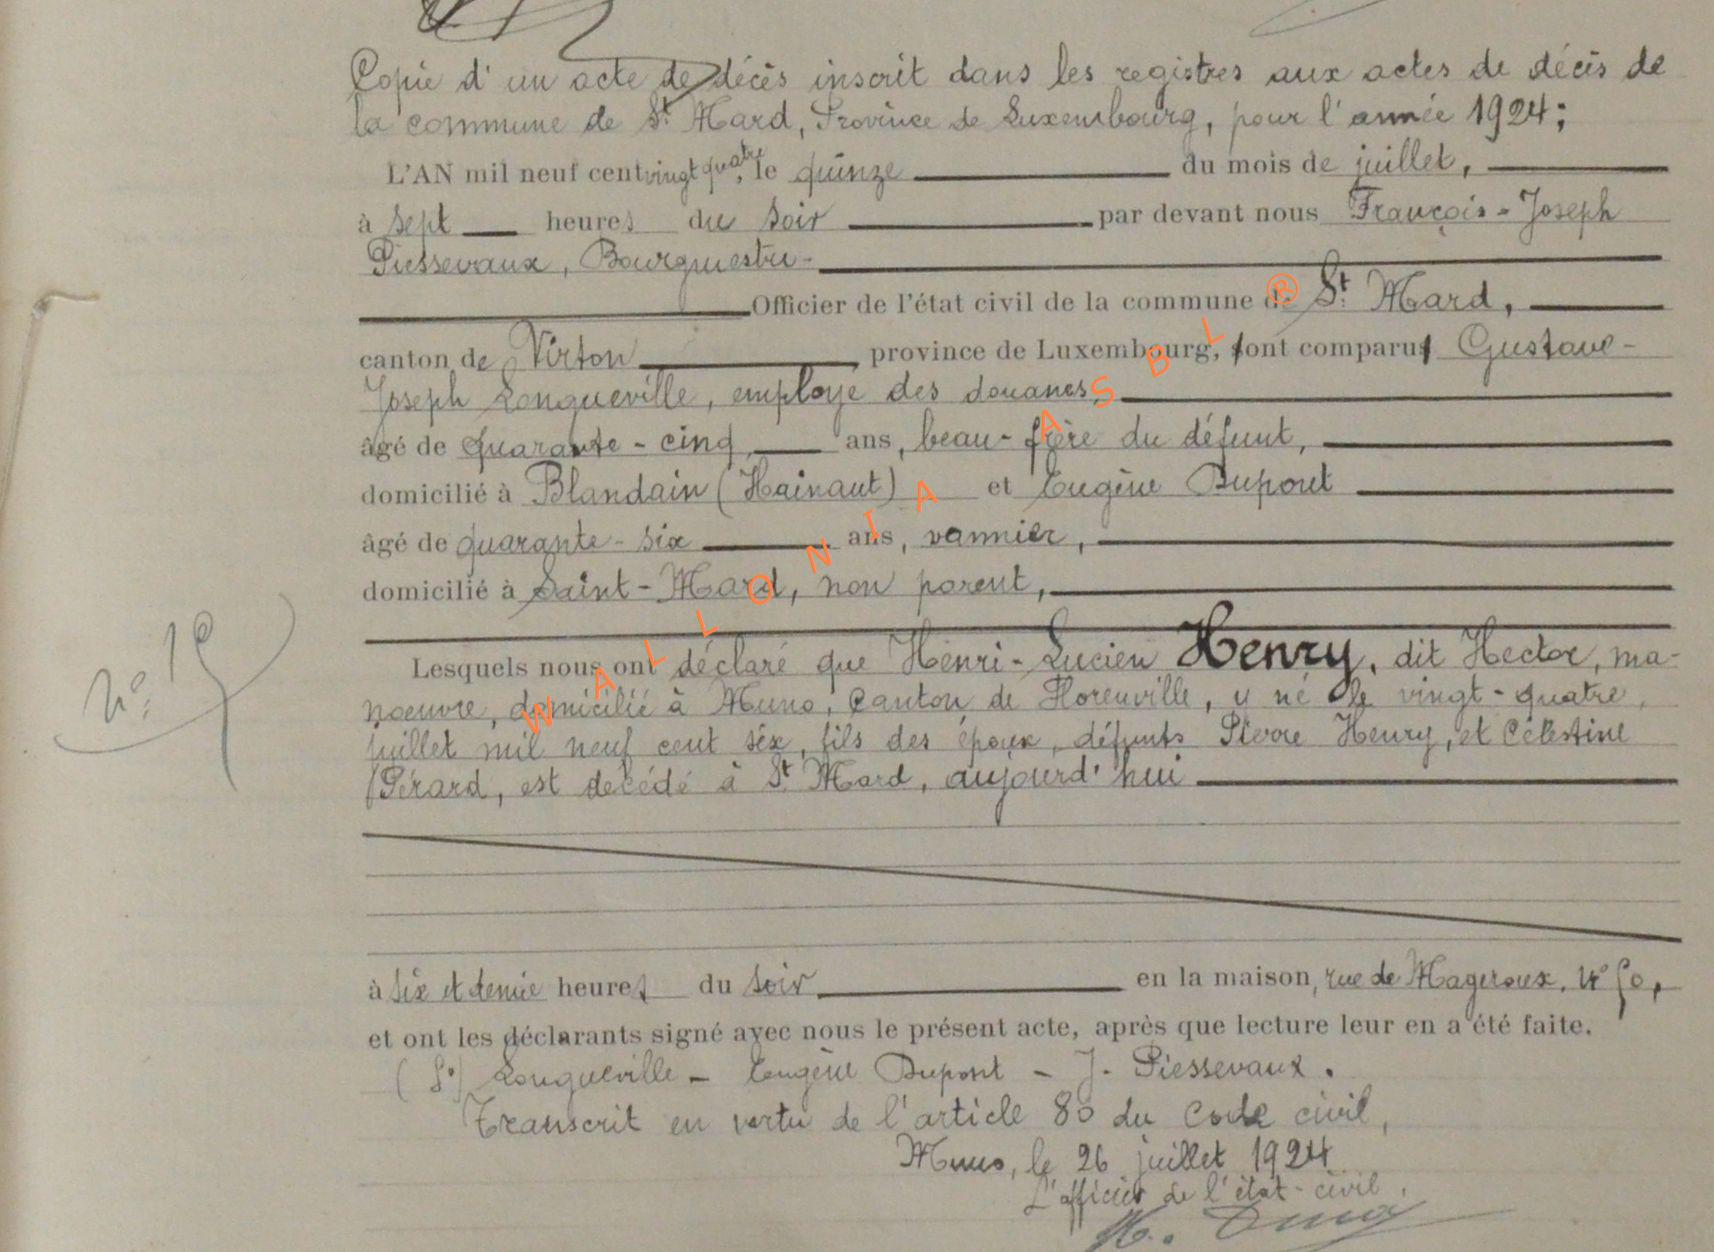 Copie d'un acte de décès inscrit dans les registres aux actes de décès de
la commune de St. Mard, Province de Luxembourg, pour l'année 1924;
L'AN mil neuf cent vingt quatre, le quinze du mois de juillet,
à sept heures du soir par devant nous François-Joseph
Piessevaux, Bourgmestre
Officier de l'état civil de la commune de St. Mard,
canton de Virton province de Luxembourg, sont comparus Gustave-
Joseph Longueville, employé des douanes,
âgé de quarante-cinq, ans, beau-frère du défunt,
domicilié à Blandain (Hainaut) et Eugène Dupont
âgé de quarante-six ans, vannier,
domicilié à Saint-Mard, non parent,
n°: 19
Lesquels nous ont déclaré que Henri-Lucien Henry, dit Hector, ma-
nœuvre, domicilié à Muno, Canton de Florenville, y né le vingt-quatre,
juillet mil neuf cent six, fils des époux, défunts Pierre Henry, et Célestine
Pérard, est décédé à St. Mard, aujourd'hui
à six et demie heures du soir en la maison, rue de Mageroux, N° 50,
et ont les déclarants signé avec nous le présent acte, après que lecture leur en a été faite.
(Sé) Longueville - Eugène Dupont - J. Piessevaux.
Transcrit en vertu de l'article 80 du Code civil,
Muno, le 26 juillet 1924
L'officier de l'état-civil,
WALLONIA ASBL ®